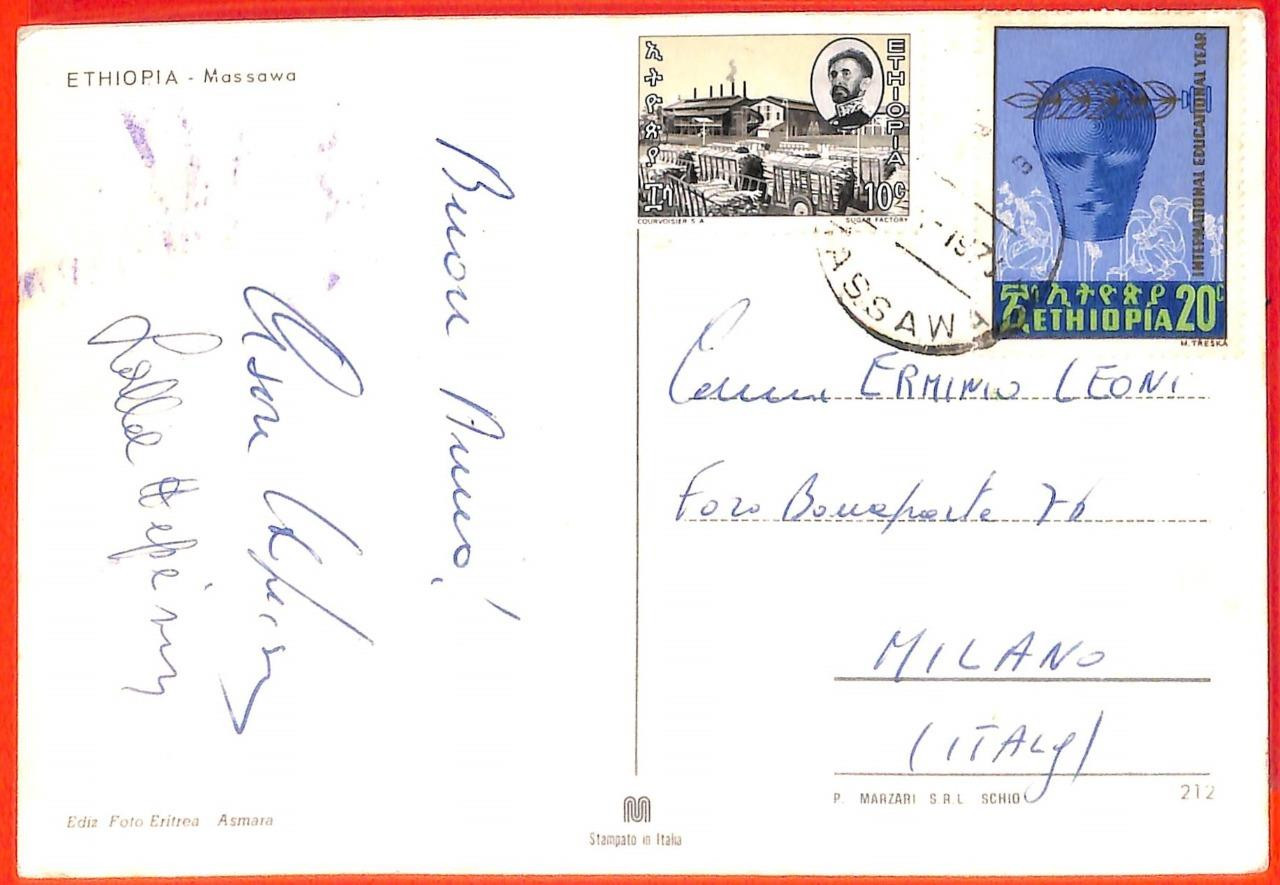 ETHIOPIA - Massawa
Buon Anno!
ኢትዮጵያ
ETHIOPIA
10c
COURVOISIER S.A
SUGAR FACTORY
INTERNATIONAL EDUCATIONAL YEAR
ኢትዮጵያ
ETHIOPIA 20c
M. TRESKA
ASSAWA
ERMINIO LEONI
Foro Bonaparte 76
MILANO
(ITALY)
P. MARZARI S.R.L. SCHIO
212
Ediz Foto Eritrea Asmara
Stampato in Italia